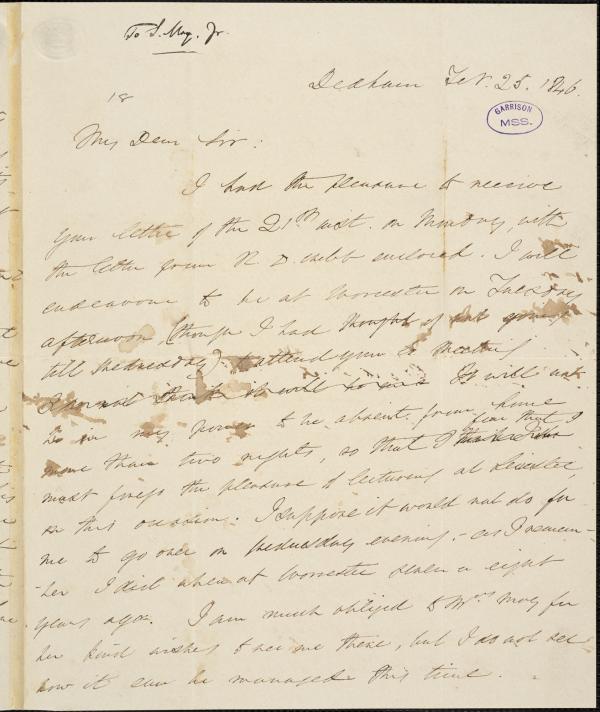 To S. May, Jr.
18
Dedham Feb. 25. 1846.
GARRISON
MSS.
My Dear Sir:
I had the pleasure to receive
your letter of the 21st inst. on Monday, with
the letter from R. D. Webb enclosed. I will
endeavour to be at Worcester on Tuesday
afternoon, (though I had thought of not going
till Wednesday) to attend your Co. Meeting
I do not think it will be in It will not
be in my power to be absent from home
more than two nights, so that I fear that I
must forego the pleasure of lecturing at Leicester,
on this occasion. I suppose it would not do for
me to go over on Wednesday evening - as I remem-
-ber I did when at Worcester seven or eight
years ago. I am much obliged to Mrs May for
her kind wishes to see me there, but I do not see
how it can be managed this time.